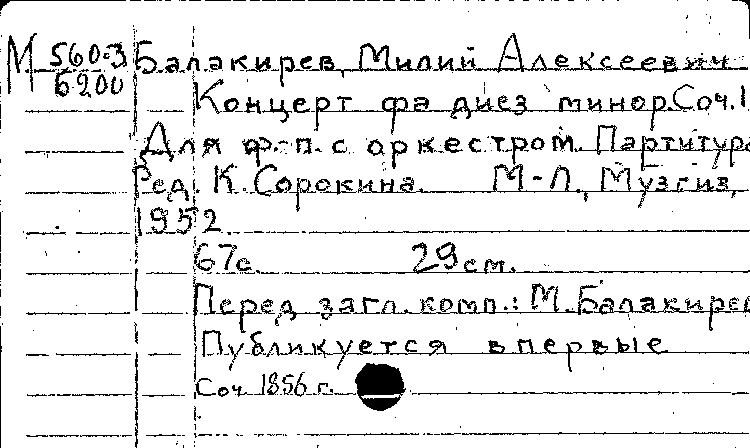 М 560-3 Балакирев, Милий Алексеевич
Б200 Концерт фа диез минор. Соч. 1
Для ф.-п. с оркестром. Партитура
Ред. К. Сорокина. М-Л., Музгиз,
1952
67с. 29см.
Перед загл. комп.: М. Балакирев
Публикуется впервые
Соч. 1856 г.